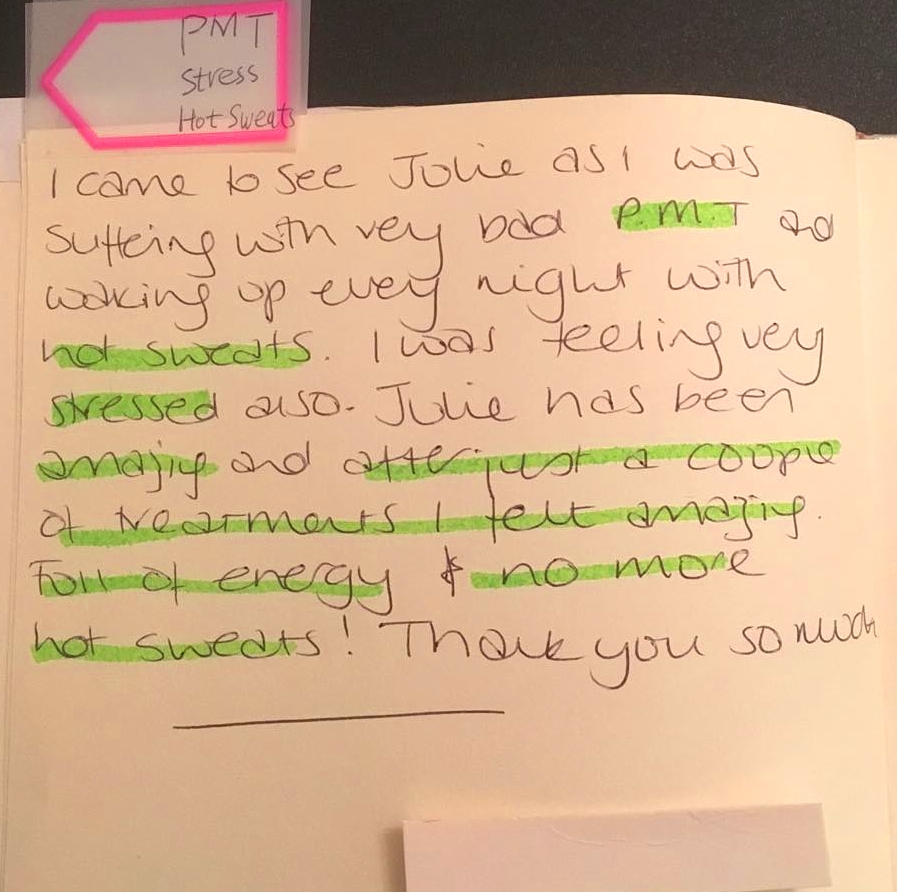 PMT
Stress
Hot Sweats
I came to see Julie as I was
suffering with very bad P.M.T and
waking up every night with
hot sweats. I was feeling very
stressed also. Julie has been
amazing and after just a couple
of treatments I felt amazing.
Full of energy & no more
hot sweats! Thank you so much